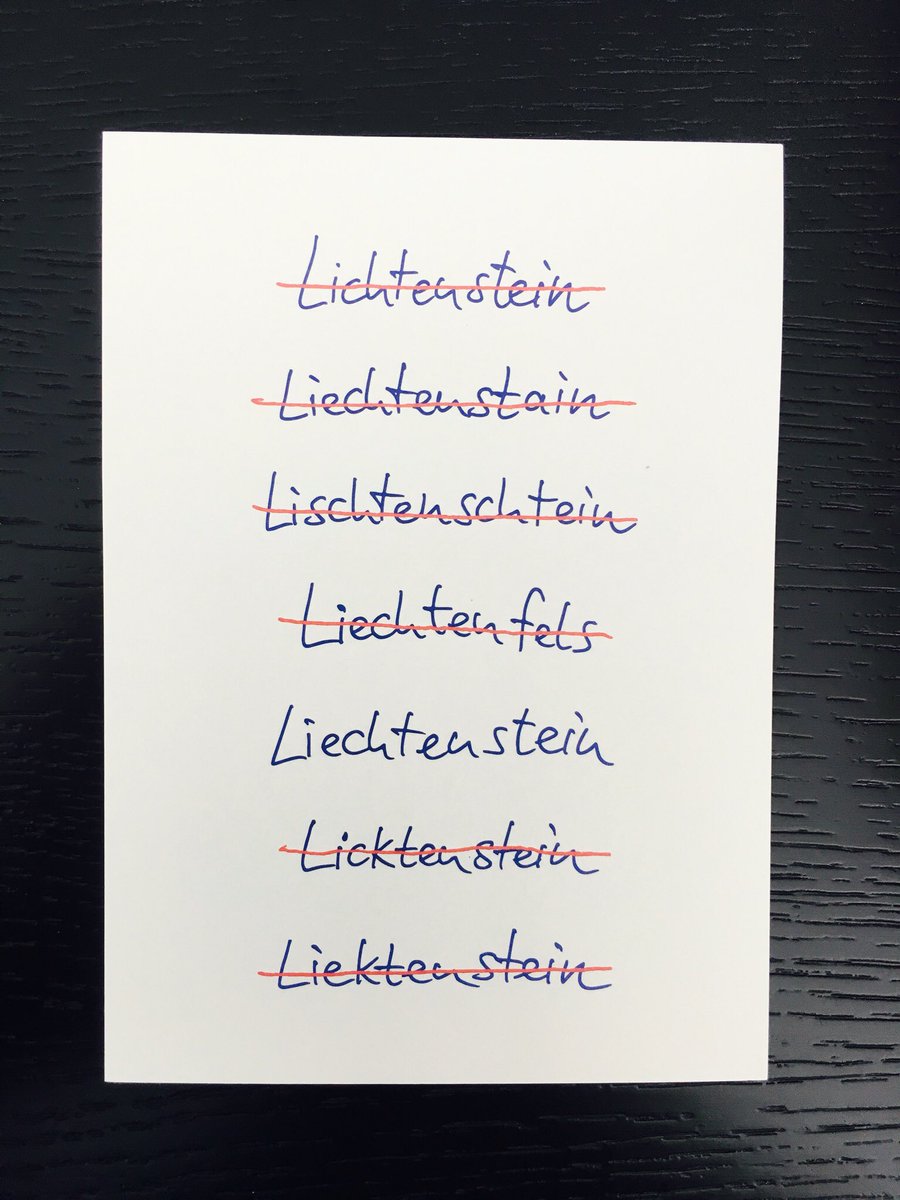 Lichtenstein
Liechtenstain
Lischtenschtein
Liechtenfels
Liechtenstein
Licktenstein
Liektenstein